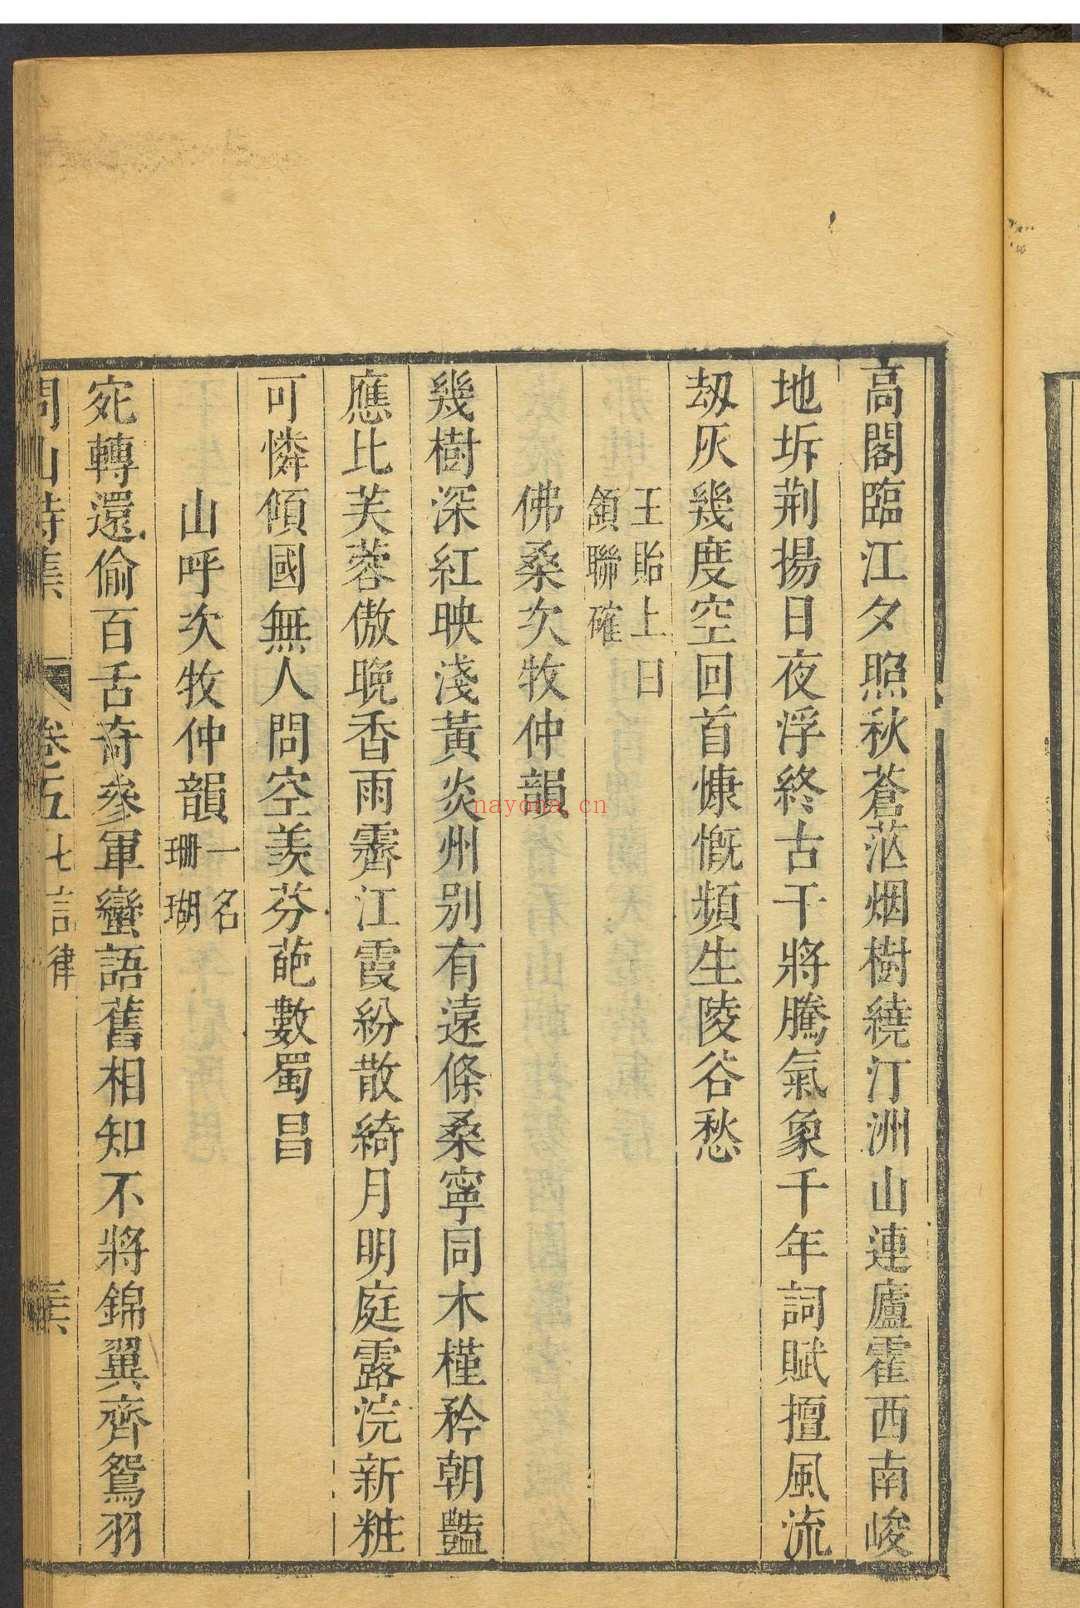 高閣臨江夕照秋蒼茫烟樹繞汀洲山連廬霍西南峻
地坼荆揚日夜浮終古干將騰氣象千年詞賦擅風流
刼灰幾度空回首慷慨頻生陵谷愁
王貽上曰
頷聯確
佛桑次牧仲韻
幾樹深紅映淺黃炎州别有遠條桑寧同木槿矜朝豔
應比芙蓉傲晚香雨霽江霞紛散綺月明庭露浣新粧
可憐傾國無人問空羡芬葩數蜀昌
山呼次牧仲韻
一名
珊瑚
宛轉還偷百舌奇參軍蠻語舊相知不將錦翼齊鴛羽
山詩集
卷五
七言律
nayona.cn